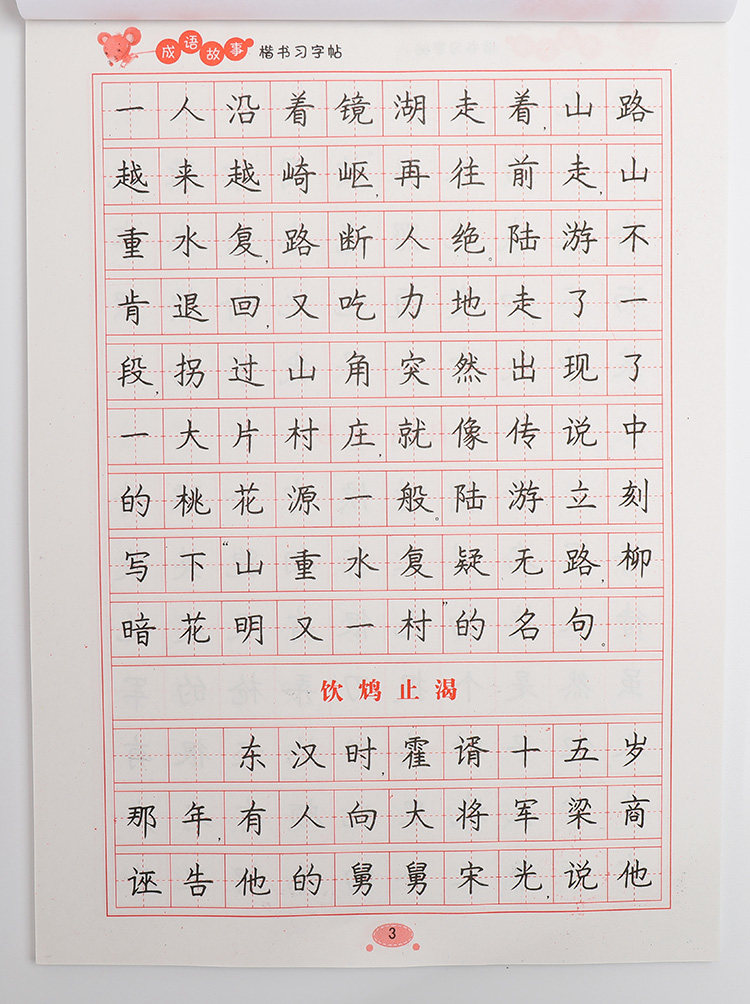 成语故事 楷书习字帖
一人沿着镜湖走着,山路
越来越崎岖,再往前走,山
重水复,路断人绝。陆游不
肯退回,又吃力地走了一
段,拐过山角突然出现了
一大片村庄,就像传说中
的桃花源一般。陆游立刻
写下“山重水复疑无路,柳
暗花明又一村”的名句。
饮鸩止渴
东汉时,霍谞十五岁
那年,有人向大将军梁商
诬告他的舅舅宋光,说他
3